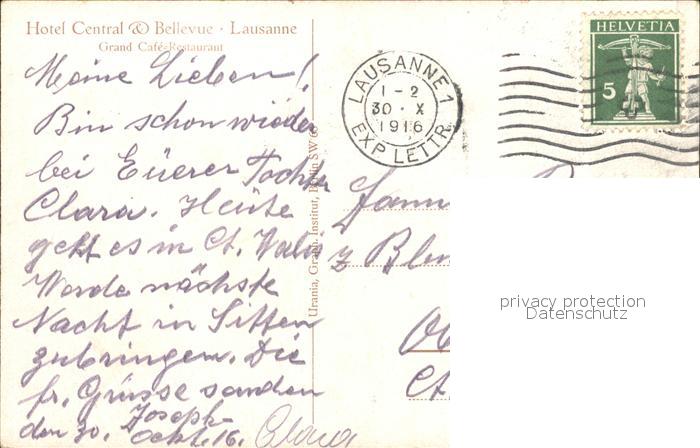 Hotel Central & Bellevue · Lausanne
Grand Café-Restaurant
Meine Lieben!
Bin schon wieder
bei Eüerer Tochter
Clara. Heüte
geht es in Ct. Valis
Werde nächste
Nacht in Sitten
zubringen. Die
fr. Grüsse senden
den 30. Joseph
Oekt. 16. Clara
Urania, Graph. Institut, Berlin SW 68
LAUSANNE 1
1-2
30·X
1916
EXP. LETTR.
HELVETIA
5
Fam
z Blu
Ob
Ct
privacy protection
Datenschutz